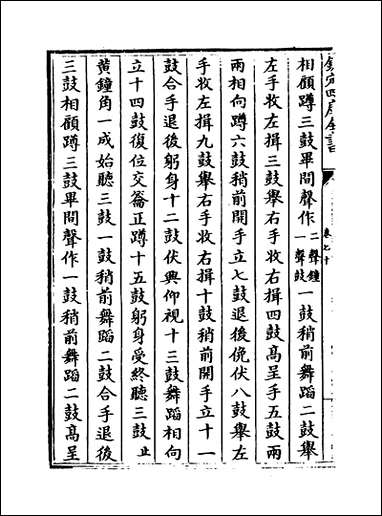 欽定四庫全書
卷七十
相顧蹲三鼓畢間聲作二聲鐘一聲鼓一鼓稍前舞蹈二鼓舉
左手收左揖三鼓舉右手收右揖四鼓髙呈手五鼓兩
兩相向蹲六鼓稍前開手立七鼓退後俛伏八鼓舉左
手收左揖九鼓舉右手收右揖十鼓稍前開手立十一
鼓合手退後躬身十二鼓伏興仰視十三鼓舞蹈相向
立十四鼓復位交籥正蹲十五鼓躬身受終聽三鼓止
黄鐘角一成始聽三鼓一鼓稍前舞蹈二鼓合手退後
三鼓相顧蹲三鼓畢間聲作一鼓稍前舞蹈二鼓髙呈